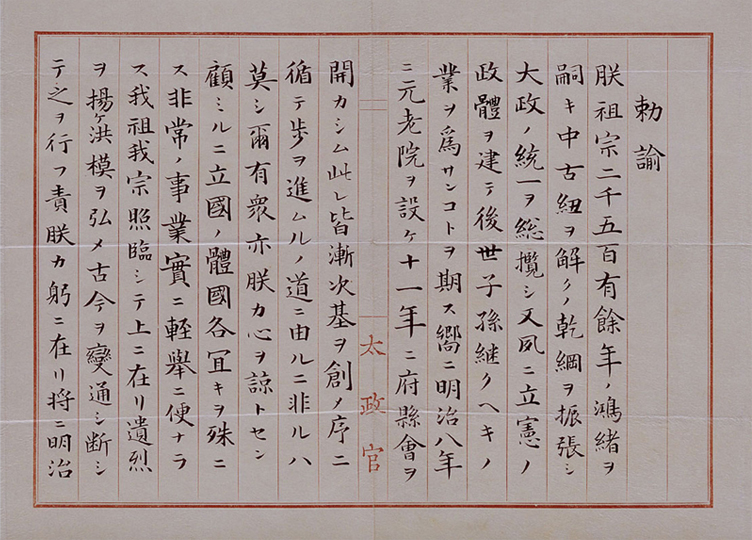 勅諭
朕祖宗二千五百有餘年ノ鴻緒ヲ
嗣キ中古紐ヲ解クノ乾綱ヲ振張シ
大政ノ統一ヲ総攬シ又夙ニ立憲ノ
政體ヲ建テ後世子孫継クヘキノ
業ヲ為サンコトヲ期ス嚮ニ明治八年
ニ元老院ヲ設ケ十一年ニ府縣會ヲ
太政官
開カシム此レ皆漸次基ヲ創メ序ニ
循テ歩ヲ進ムルノ道ニ由ルニ非ルハ
莫シ爾有衆亦朕カ心ヲ諒トセン
顧ミルニ立國ノ體國各宜キヲ殊ニ
ス非常ノ事業實ニ輕舉ニ便ナラ
ス我祖我宗照臨シテ上ニ在リ遺烈
ヲ揚ケ洪模ヲ弘メ古今ヲ變通シ断シ
テ之ヲ行フ責朕カ躬ニ在リ将ニ明治